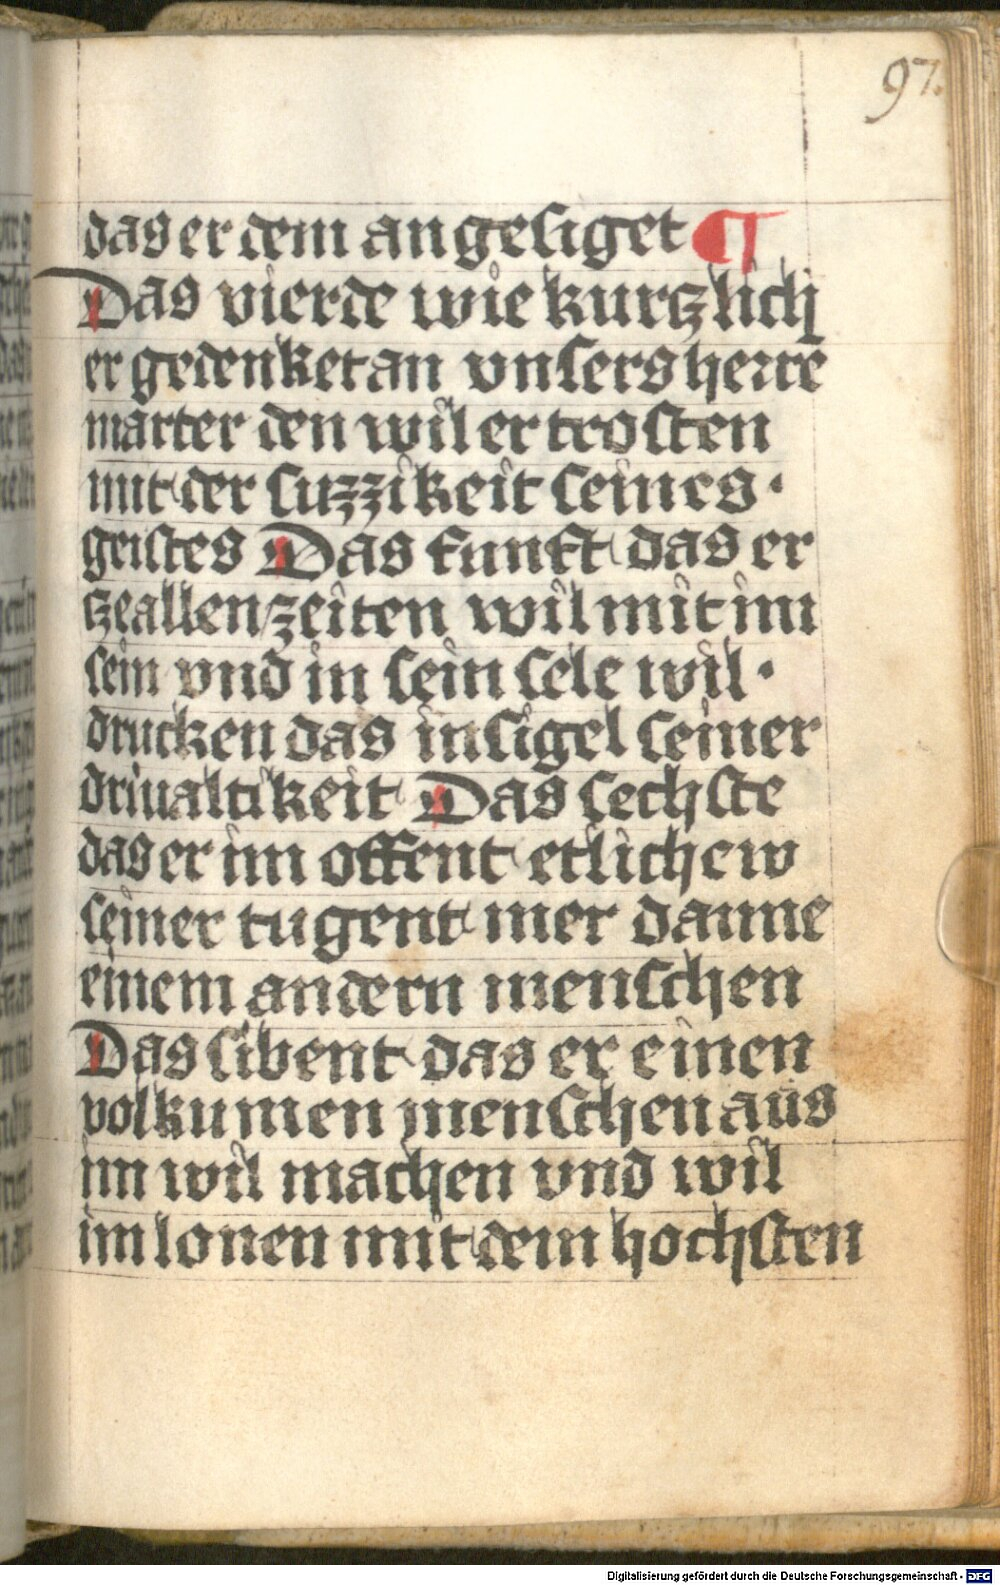 97.
das er dem an gesiget ¶
Das vierde wie kurtzlich
er gedenket an vnsers herre
marter den wil er trosten
mit der suzzikeit seines·
geistes Das funft das er
tze allen zeiten wil mit im
sein vnd in sein sele wil·
drucken das insigel seiner
driualtikeit Das sechste
das er im offent etlichew
seiner tugent mer danne
einem andern menschen
Das sibent das er einen
volkumen menschen aus
im wil machen vnd wil
im lonen mit dem hochsten
Digitalisierung gefördert durch die Deutsche Forschungsgemeinschaft - DFG